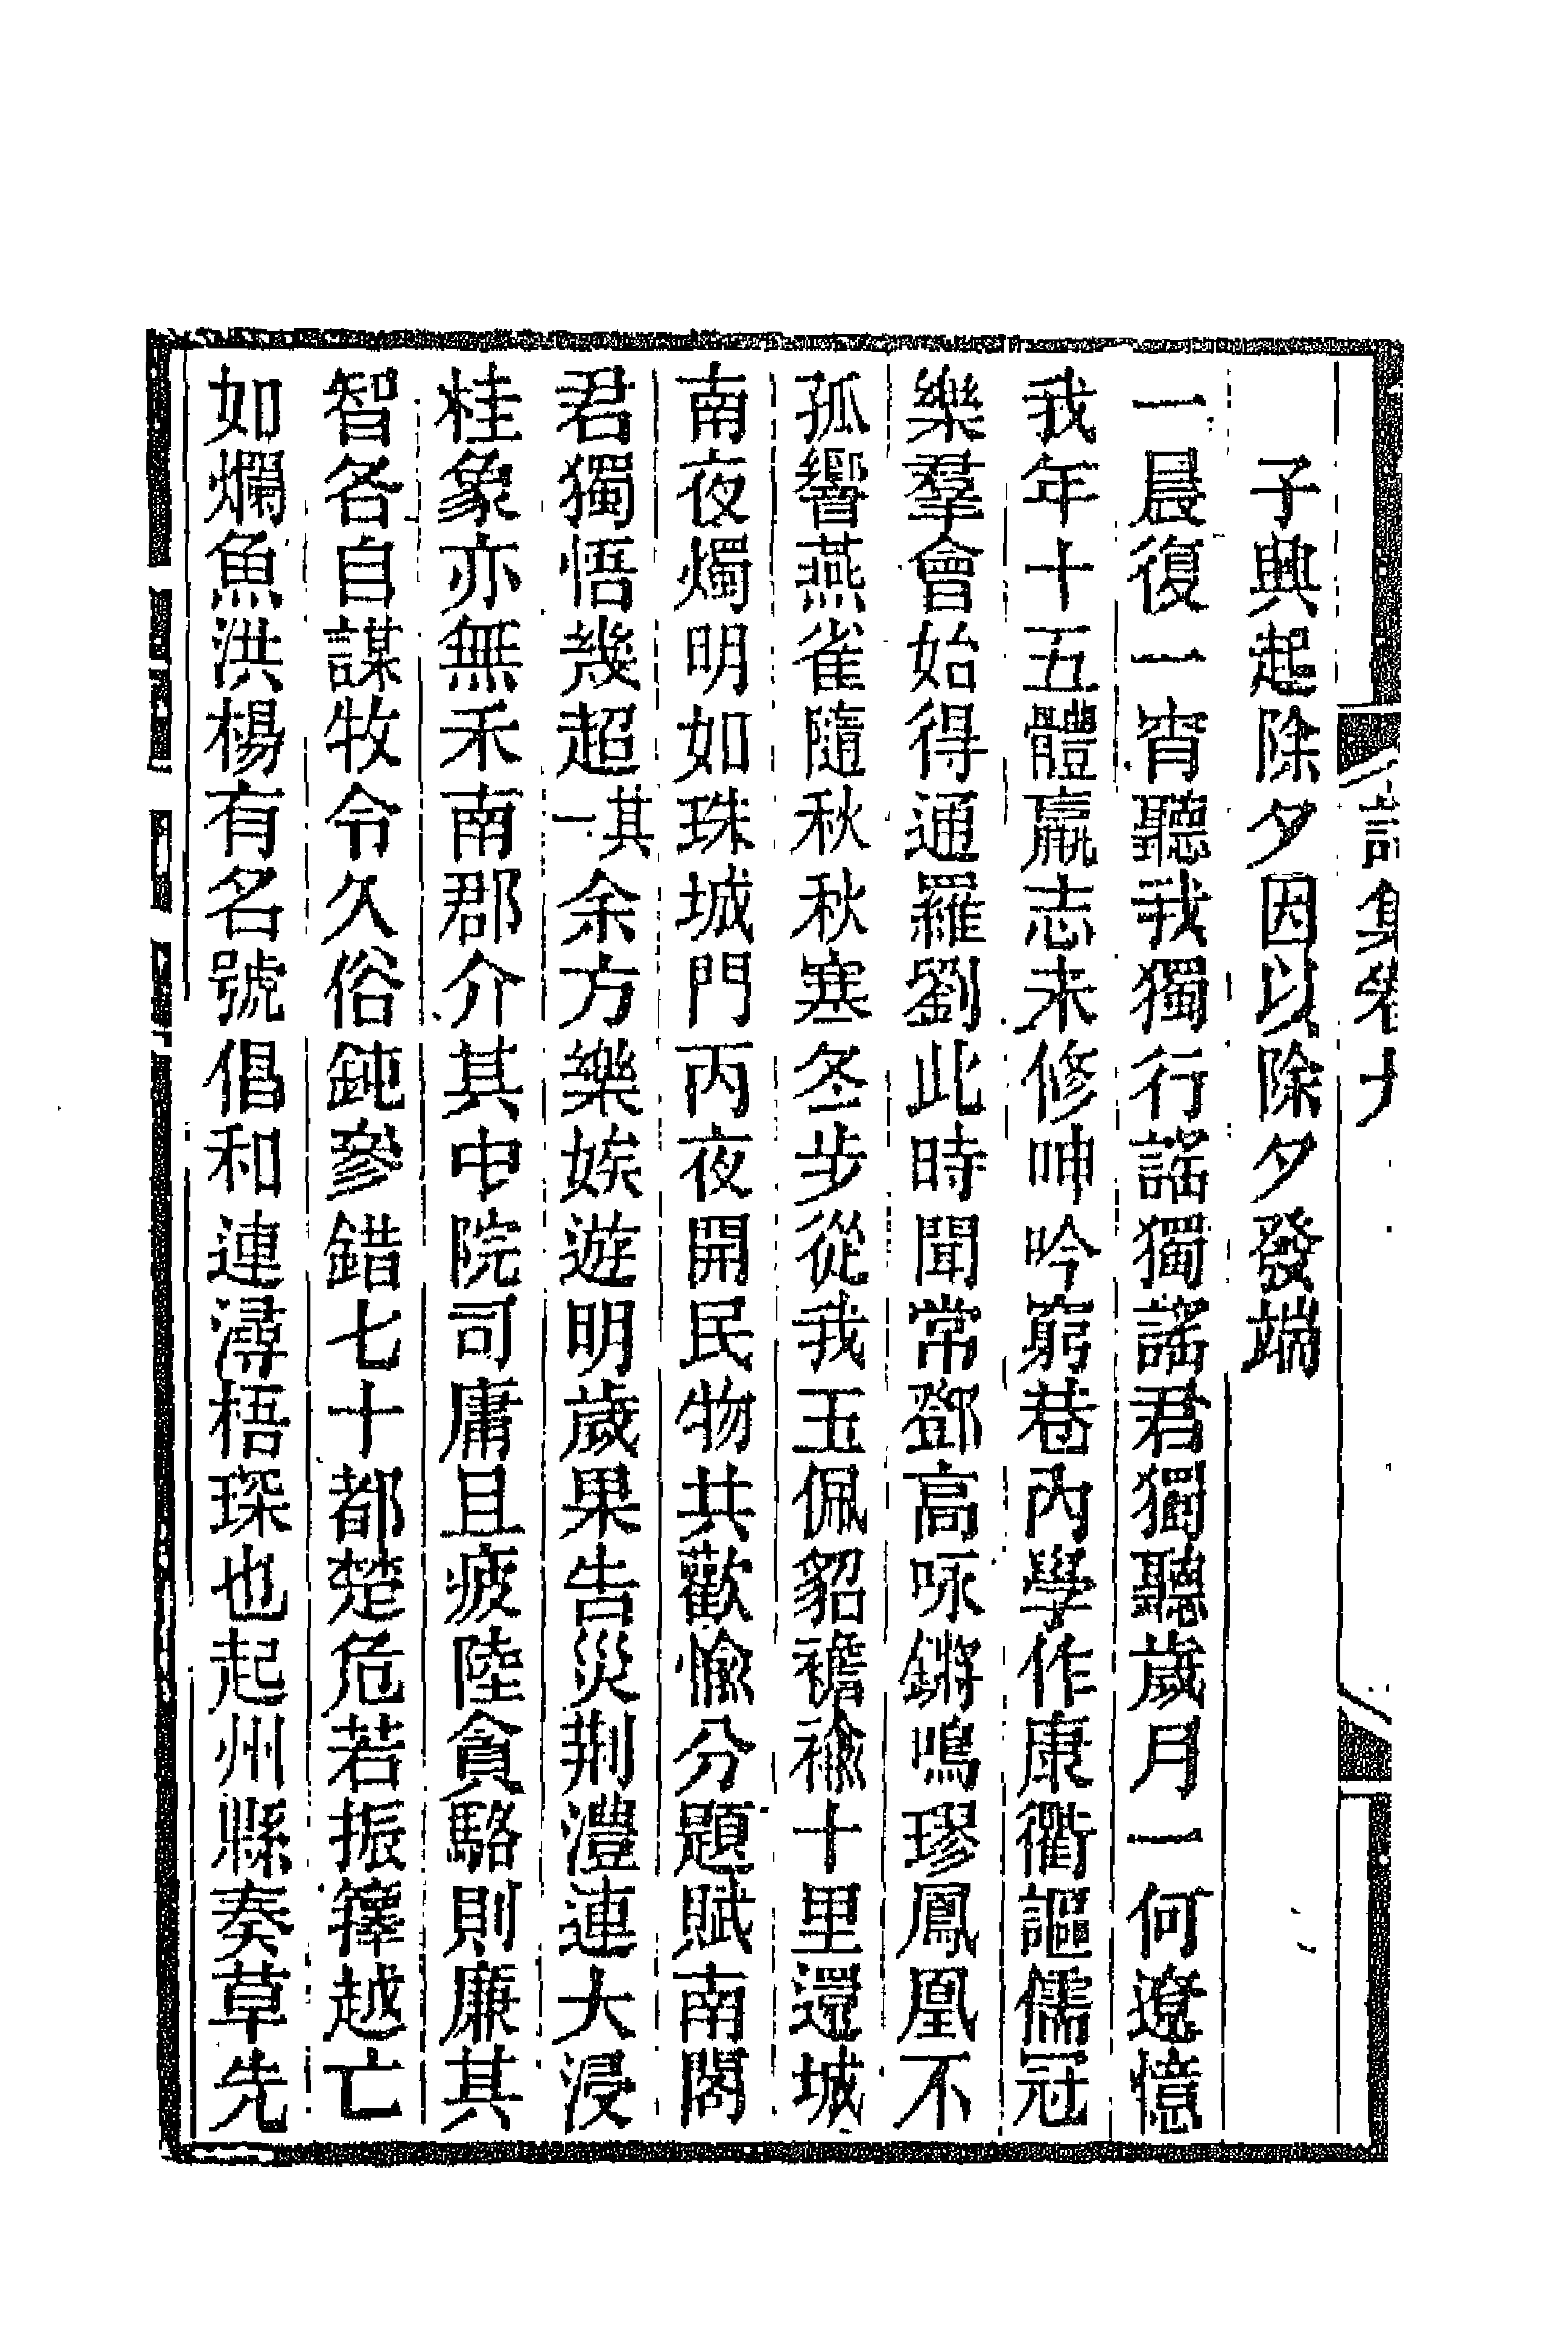 子典起除夕因以除夕發端
一晨復一宵聽我獨行謠獨謠君獨聽歲月一何遼憶
我年十五體羸志未修呻吟窮巷內學作康衢謳儒冠
樂羣會始得通羅劉此時聞常鄧高咏鏘鳴璆鳳凰不
孤響燕雀隨秋秋寒冬步從我玉佩貂襜褕十里還城
南夜燭明如珠城門丙夜開民物共歡愉分題賦南閣
君獨悟幾超其一余方樂娭遊明歲果告災荆澧連大浸
桂象亦無禾南郡介其中院司庸且疲陸貪駱則廉其
智各自謀牧令久俗鈍參錯七十都楚危若振籜越亡
如爛魚洪楊有名號倡和連潯梧琛也起州縣奏草先